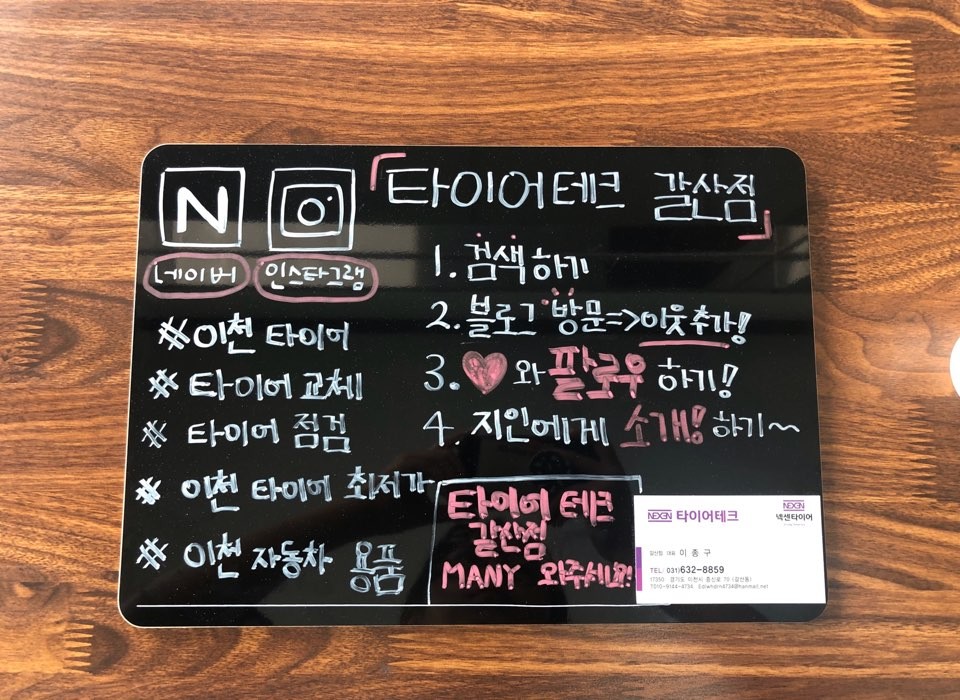 N
「타이어테크 갈산점」
네이버 인스타그램
#이천 타이어
# 타이어 교체
# 타이어 점검
# 이천 타이어 최저가
# 이천 자동차 용품
1. 검색하기
2. 블로그 방문=>이웃추가!
3. ♥와 팔로우 하기!
4 지인에게 소개! 하기~
타이어 테크
갈산점
MANY 와주세요!
NEXEN 타이어테크
NEXEN
넥센타이어
갈산점 대표 이 종 구
TEL: 031)632-8859